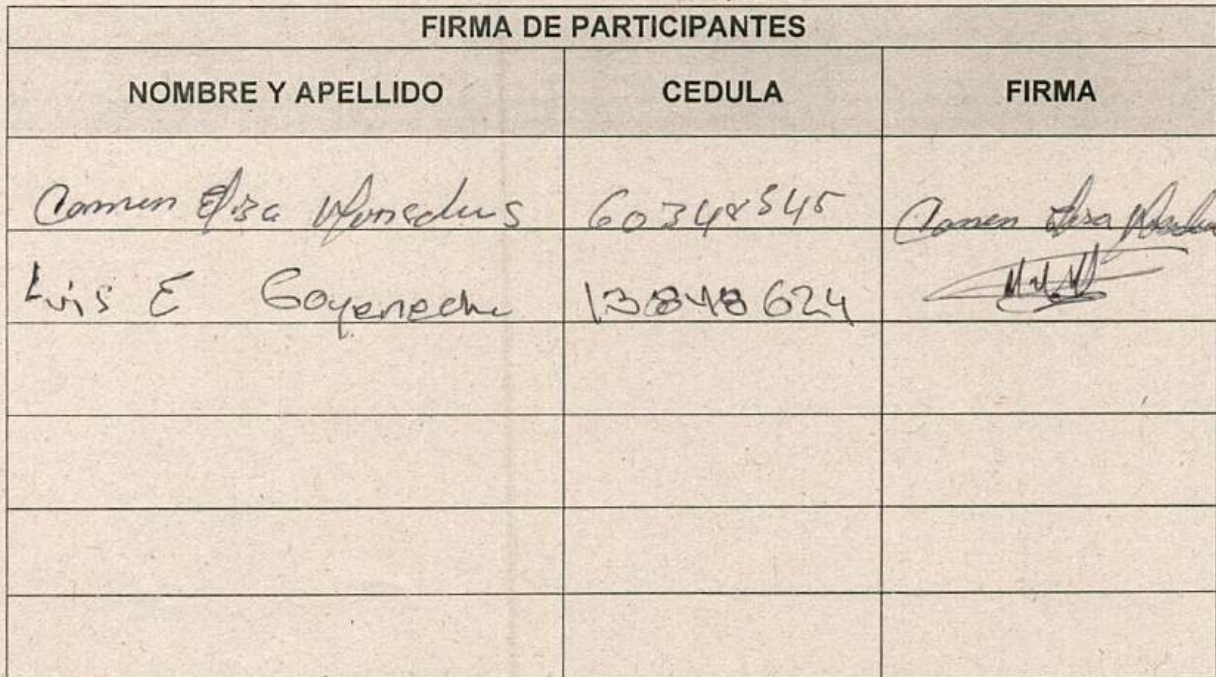 FIRMA DE PARTICIPANTES
NOMBRE Y APELLIDO CEDULA FIRMA
Carmen Elisa 60348545 Carmen Elisa
Luis E Goyeneche 13848624